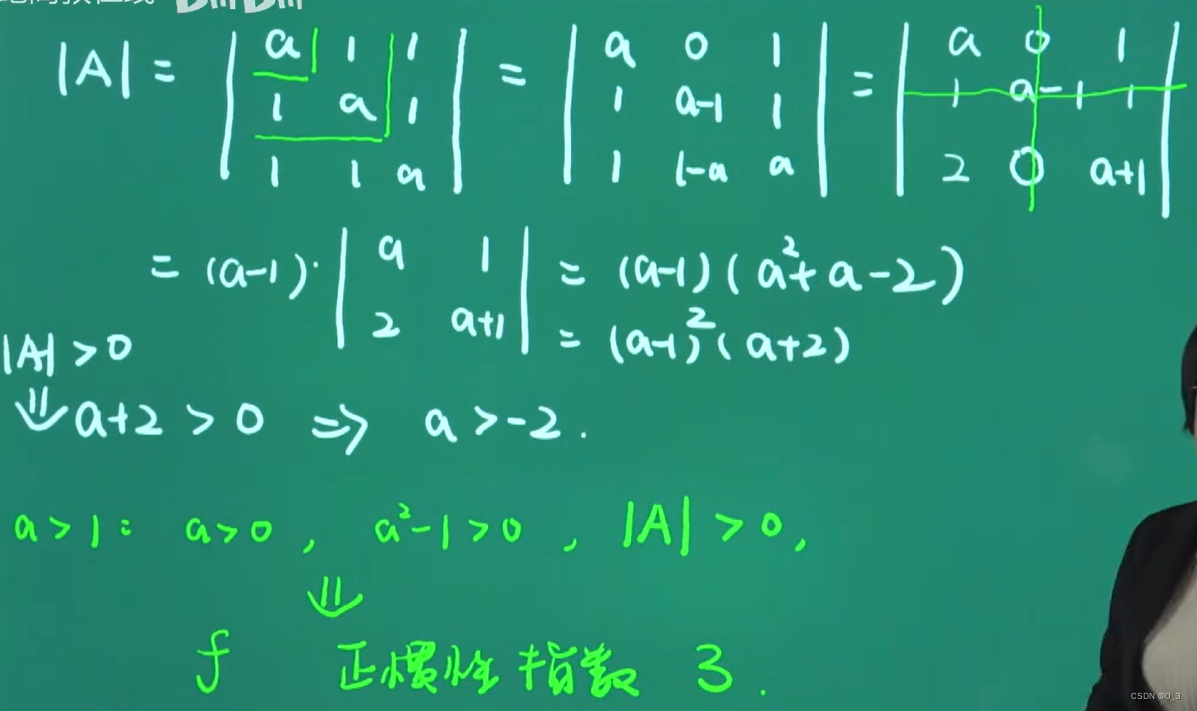 |A| = | a 1 1 ; 1 a 1 ; 1 1 a | = | a 0 1 ; 1 a-1 1 ; 1 1-a a | = | a 0 1 ; 1 a-1 1 ; 2 0 a+1 |
= (a-1)· | a 1 ; 2 a+1 | = (a-1)(a²+a-2)
= (a-1)²(a+2)
|A| > 0
⇓ a+2 > 0 ⇒ a > -2.
a > 1: a > 0, a²-1 > 0, |A| > 0,
⇓
f 正惯性指数 3.
CSDN @0_3